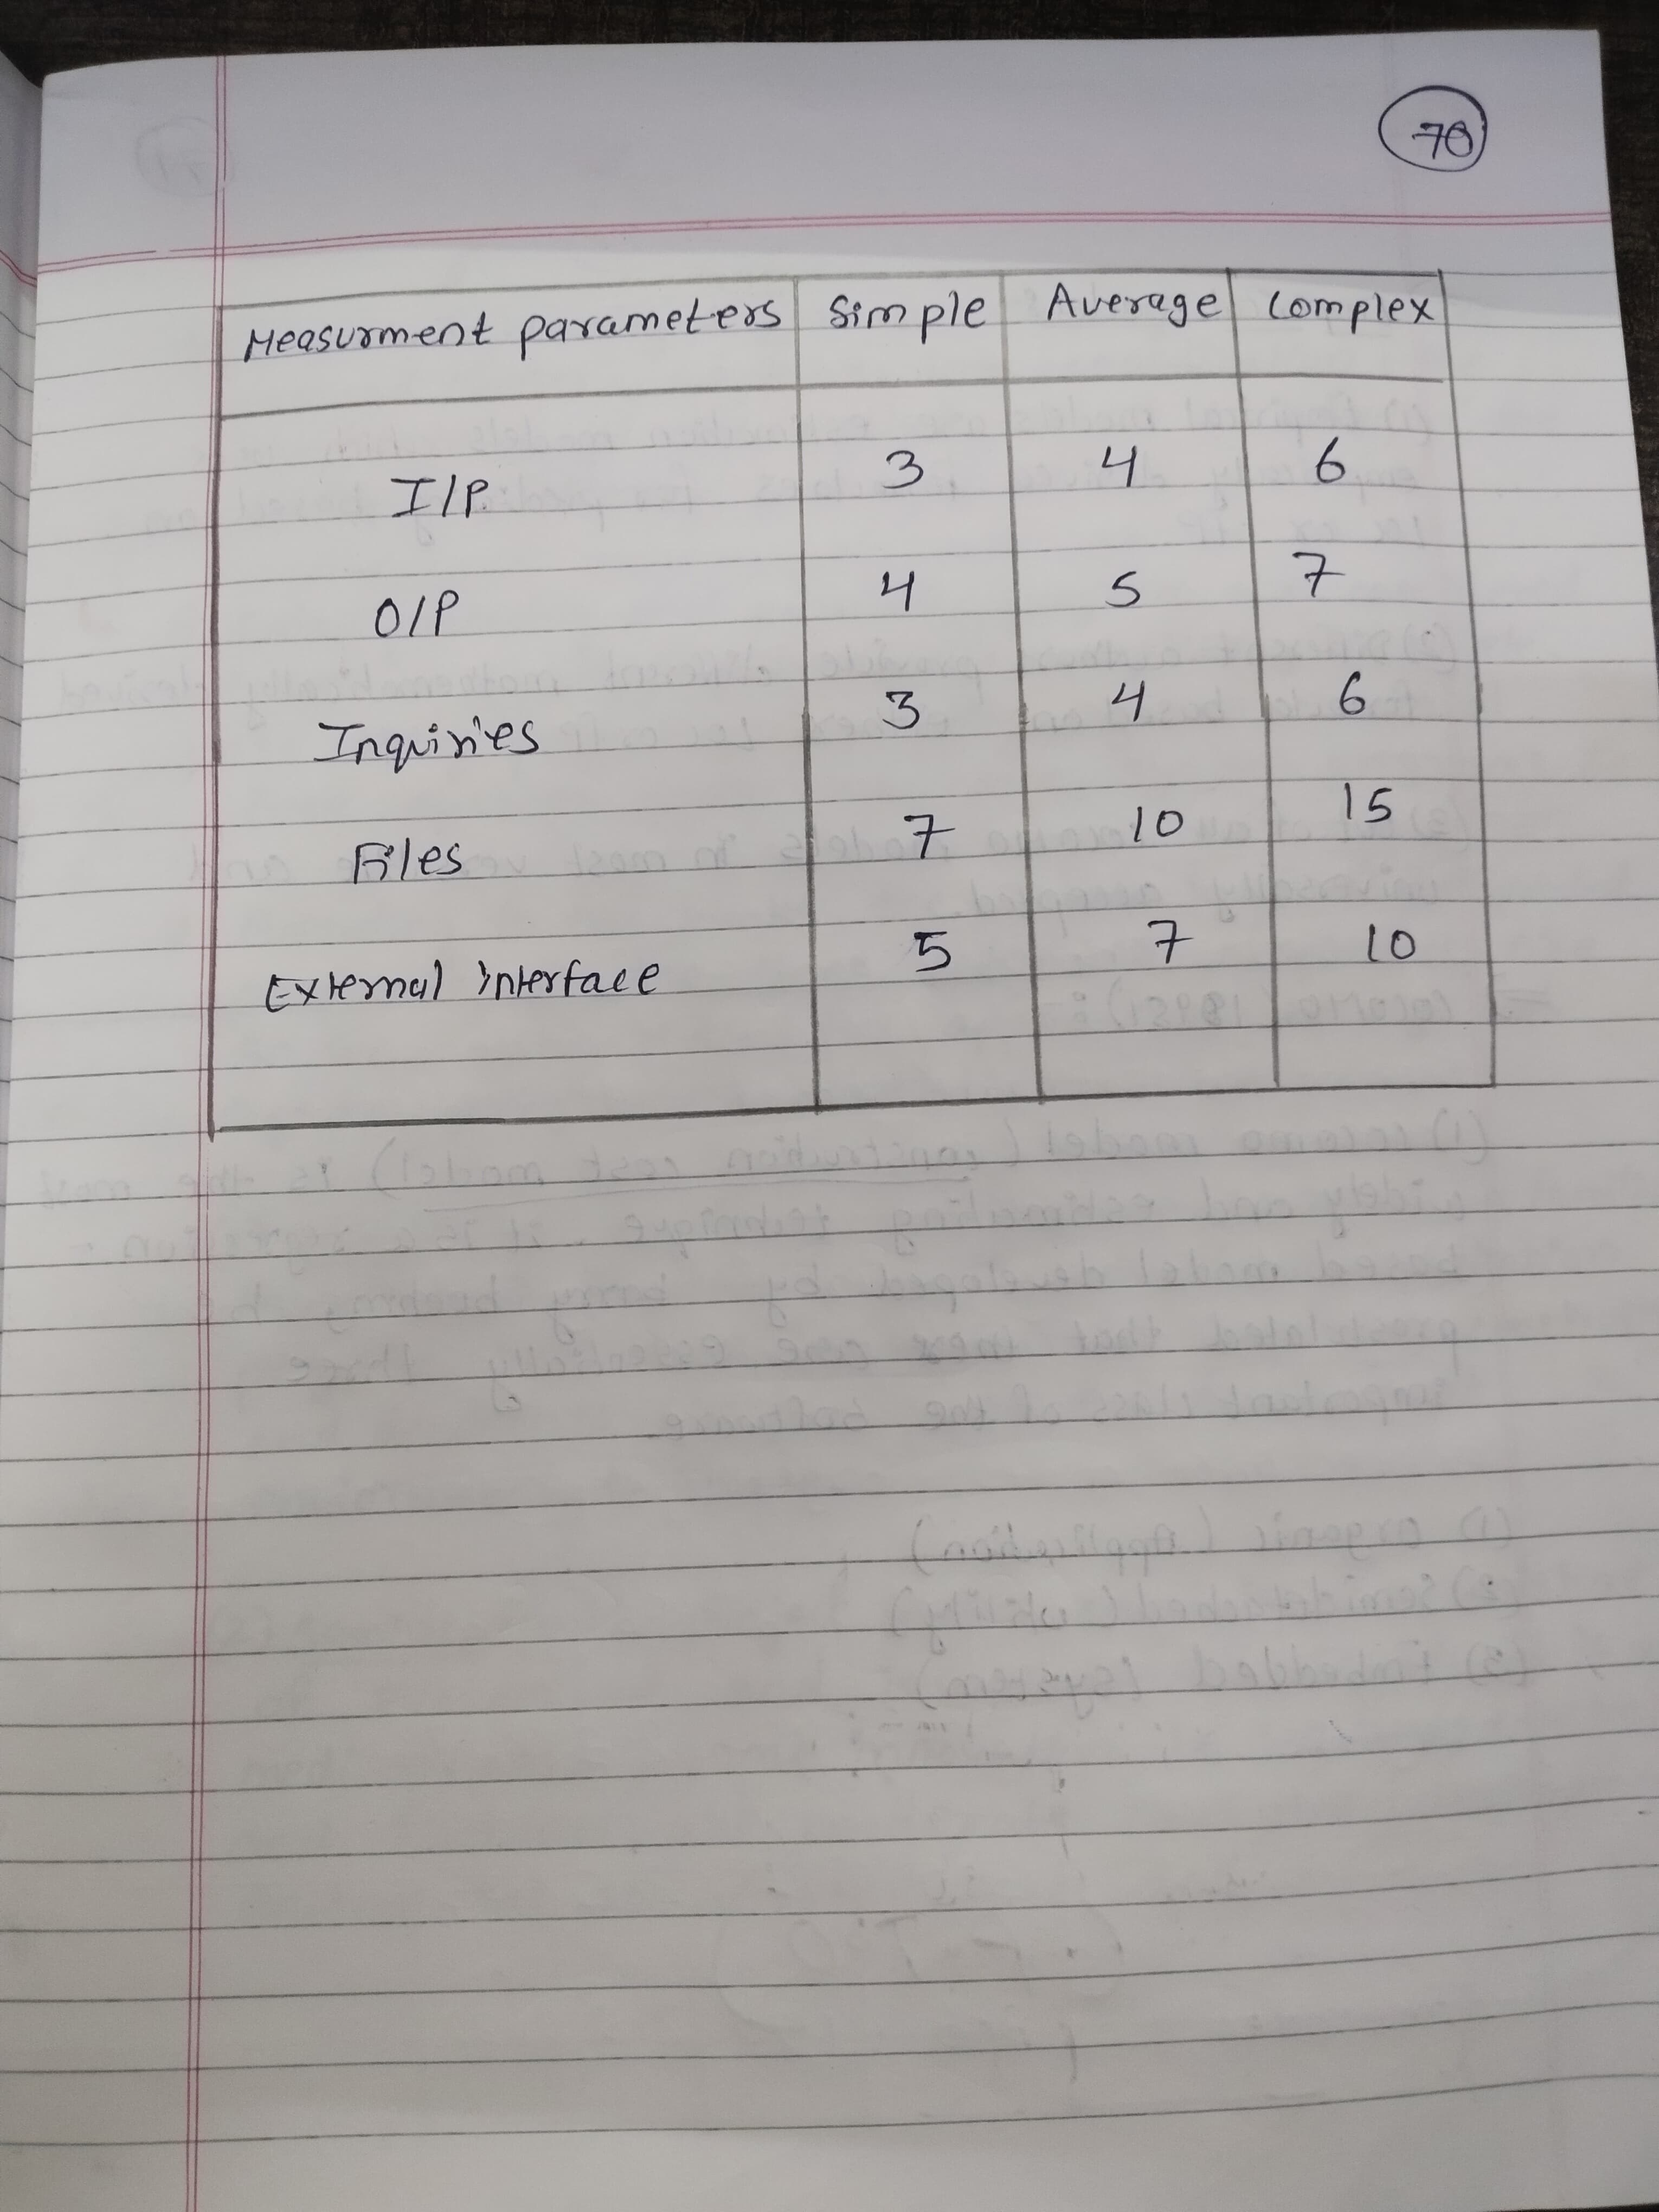 70
Measurment parameters Simple Average Complex
I/P. 3 4 6
O/P 4 5 7
Inquiries 3 4 6
Files 7 10 15
External interface 5 7 10